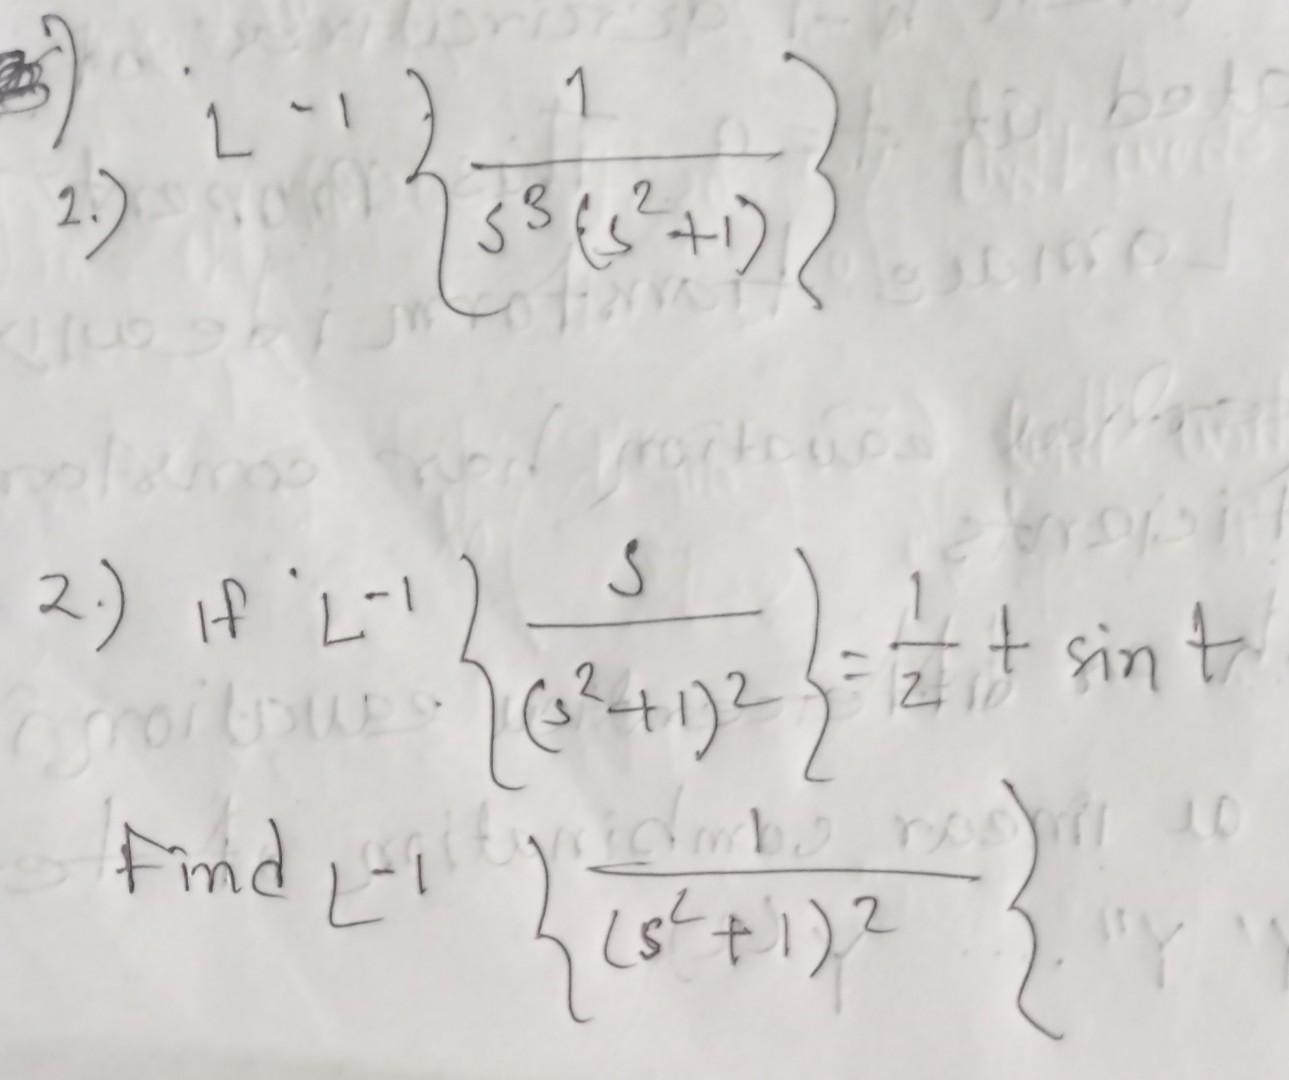 2.) L⁻¹ { 1 / s³(s²+1) }
2.) If L⁻¹ { s / (s²+1)² } = 1/2 t sin t
Find L⁻¹ { / (s²+1)² }